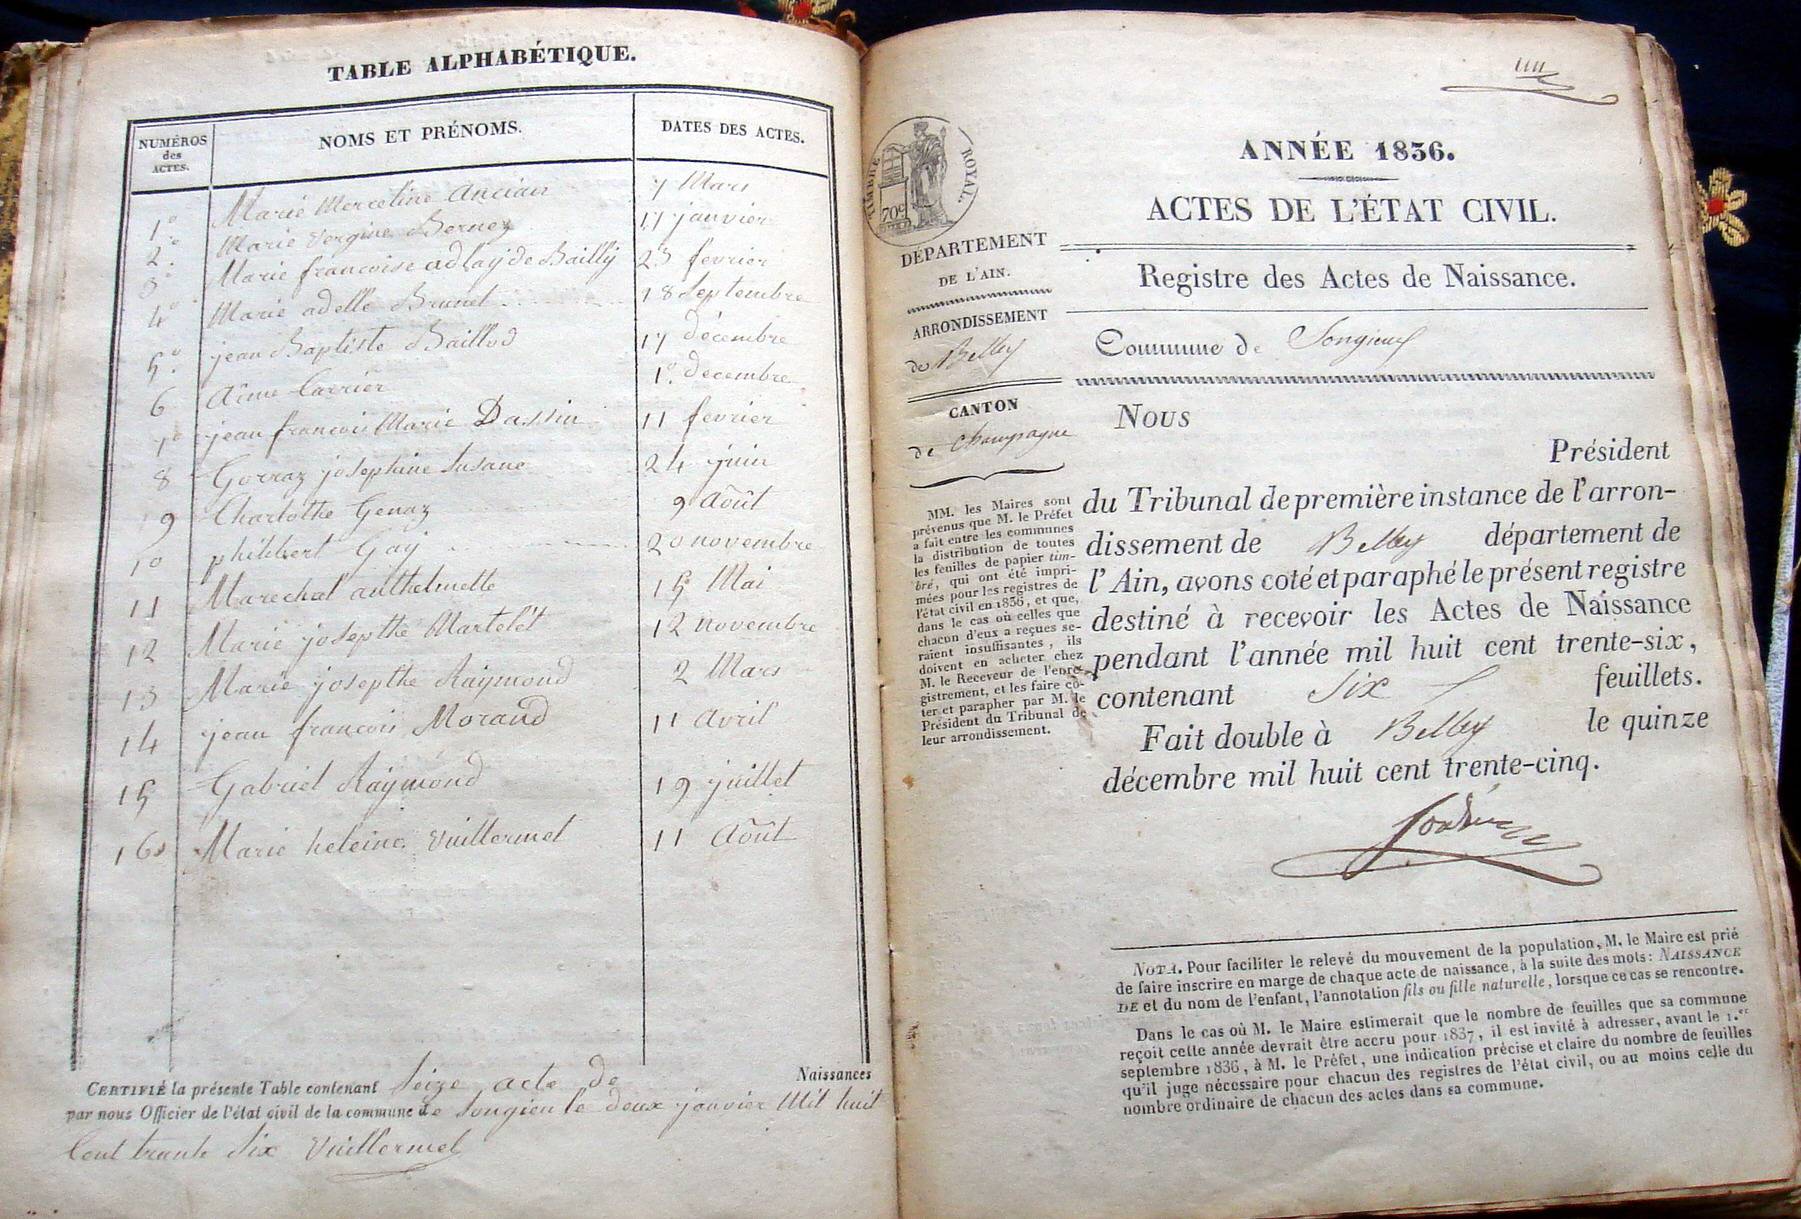 TABLE ALPHABÉTIQUE.
NUMÉROS des ACTES. NOMS ET PRÉNOMS. DATES DES ACTES.
1° Marie Marceline Ancian 7 Mars
2° Marie Vergine Bernez 17 janvier
3° Marie francoise adlay de Bailly 23 fevrier
4° Marie adelle Brunet 18 Septembre
5° jean Baptiste Baillod 17 décembre
6 Aime Carrier 1° decembre
7° jean francois Marie Dassin 11 fevrier
8 Gorraz josephine Susane 24 juin
9 Charlothe Genaz 9 Août
10 philibert Gay 20 novembre
11 Marechal anthelmette 15 Mai
12 Marie josepthe Martelet 12 novembre
13 Marie josepthe Raymond 2 Mars
14 jean francois Morand 11 Avril
15 Gabriel Raymond 19 juillet
16 Marie heleine Vuillermet 11 Août
CERTIFIÉ la présente Table contenant Seize acte de Naissances
par nous Officier de l'état civil de la commune de Songieu le deux janvier Mil huit
Cent trante Six Vuillermet
TIMBRE ROYAL.
70c
ANNÉE 1836.
ACTES DE L'ÉTAT CIVIL.
DÉPARTEMENT
DE L'AIN.
Registre des Actes de Naissance.
ARRONDISSEMENT
de Belley
Commune de Songieux
CANTON
de Champagne
MM. les Maires sont
prévenus que M. le Préfet
a fait entre les communes
la distribution de toutes
les feuilles de papier tim-
bré, qui ont été impri-
mées pour les registres de
l'état civil en 1836, et que,
dans le cas où celles que
chacun d'eux a reçues se-
raient insuffisantes, ils
doivent en acheter chez
M. le Receveur de l'enre-
gistrement, et les faire co-
ter et parapher par M. le
Président du Tribunal de
leur arrondissement.
NOUS
Président
du Tribunal de première instance de l'arron-
dissement de Belley département de
l'Ain, avons coté et paraphé le présent registre
destiné à recevoir les Actes de Naissance
pendant l'année mil huit cent trente-six,
contenant Six feuillets.
Fait double à Belley le quinze
décembre mil huit cent trente-cinq.
NOTA. Pour faciliter le relevé du mouvement de la population, M. le Maire est prié
de faire inscrire en marge de chaque acte de naissance, à la suite des mots: NAISSANCE
DE et du nom de l'enfant, l'annotation fils ou fille naturelle, lorsque ce cas se rencontre.
Dans le cas où M. le Maire estimerait que le nombre de feuilles que sa commune
reçoit cette année devrait être accru pour 1837, il est invité à adresser, avant le 1.er
septembre 1836, à M. le Préfet, une indication précise et claire du nombre de feuilles
qu'il juge nécessaire pour chacun des registres de l'état civil, ou au moins celle du
nombre ordinaire de chacun des actes dans sa commune.